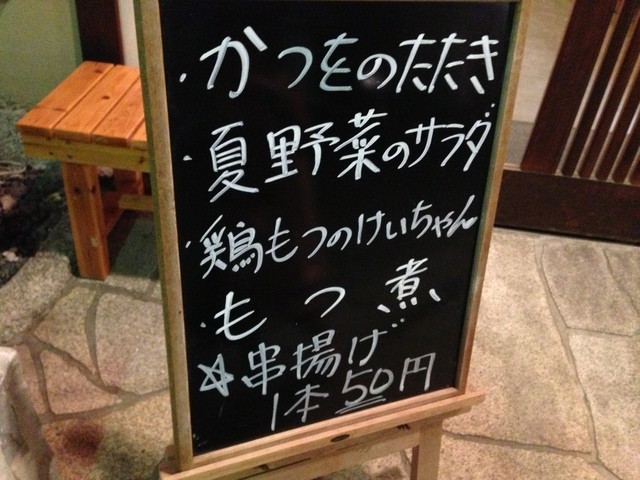 ・かつをのたたき
・夏野菜のサラダ
・鶏もつのけいちゃん
・もつ煮
☆串揚げ
1本50円